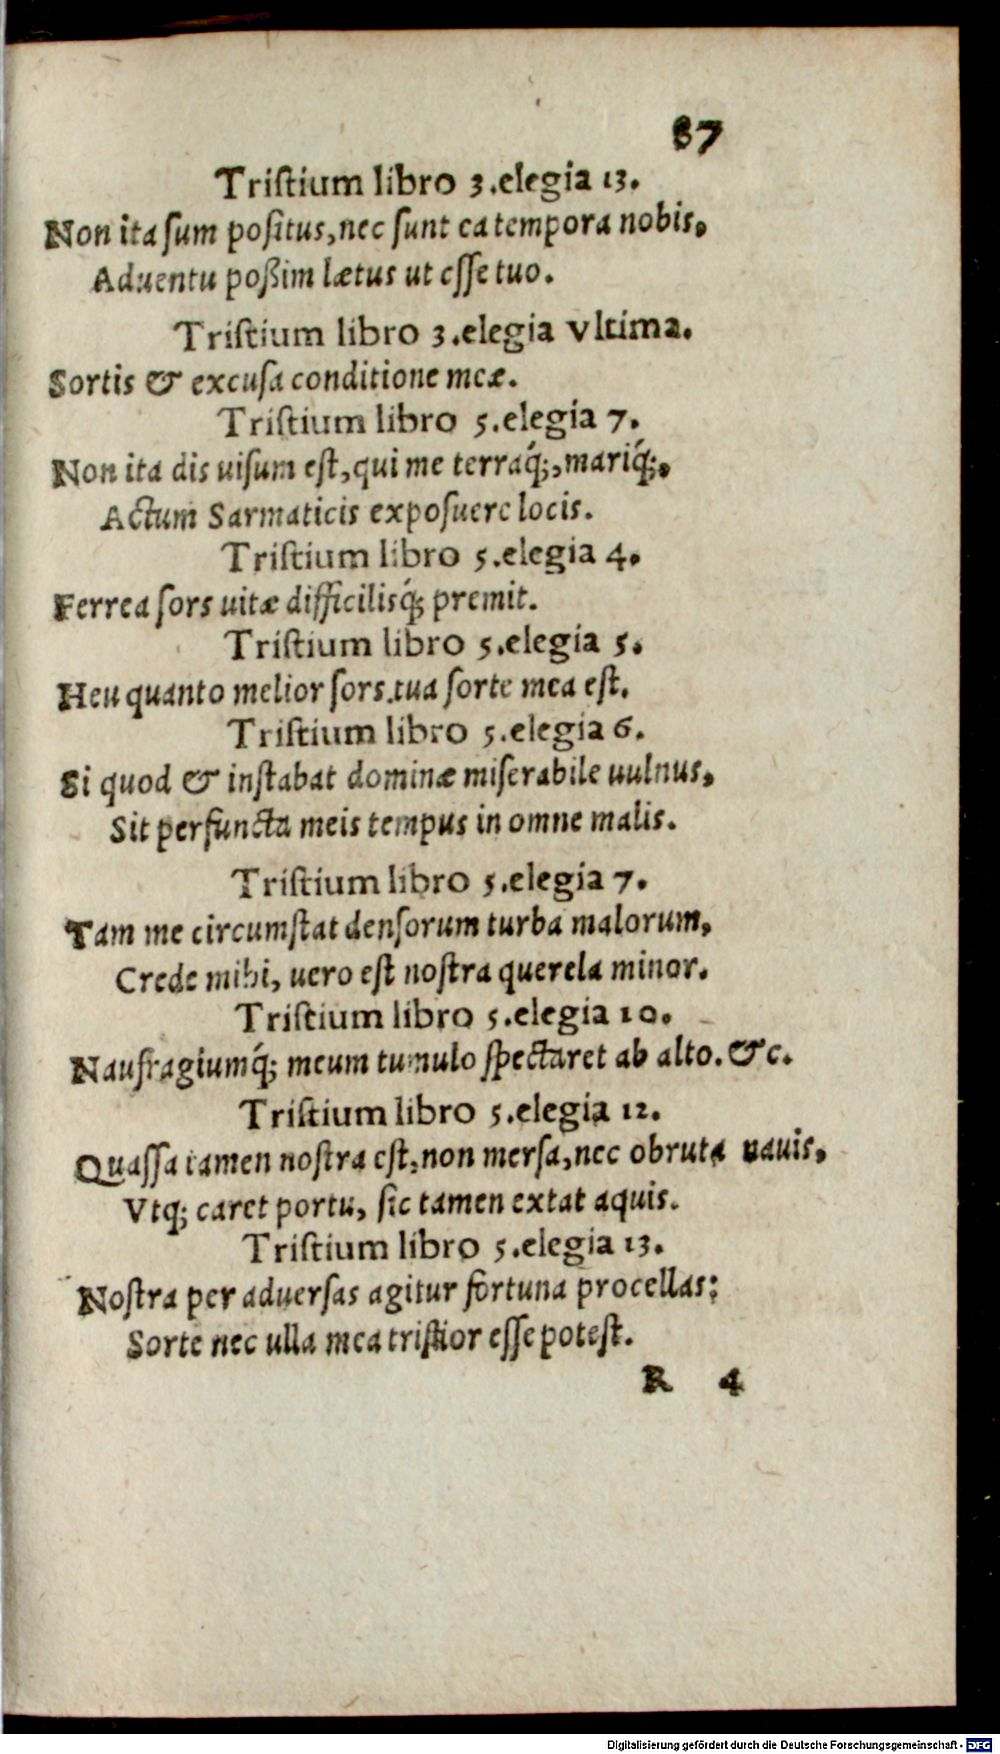 87
Tristium libro 3.elegia 13.
Non ita sum positus,nec sunt ea tempora nobis,
Aduentu poßim lætus ut esse tuo.
Tristium libro 3.elegia vltima.
Sortis & excusa conditione meæ.
Tristium libro 5.elegia 7.
Non ita dis uisum est,qui me terraq́;,mariq́;,
Actum Sarmaticis exposuere locis.
Tristium libro 5.elegia 4.
Ferrea sors uitæ difficilisq́; premit.
Tristium libro 5.elegia 5.
Heu quanto melior sors tua sorte mea est.
Tristium libro 5.elegia 6.
Si quod & instabat dominæ miserabile uulnus,
Sit perfuncta meis tempus in omne malis.
Tristium libro 5.elegia 7.
Tam me circumstat densorum turba malorum,
Crede mihi, uero est nostra querela minor.
Tristium libro 5.elegia 10.
Naufragiumq́; meum tumulo spectaret ab alto. &c.
Tristium libro 5.elegia 12.
Quassa tamen nostra est,non mersa,nec obruta nauis,
Vtq; caret portu, sic tamen extat aquis.
Tristium libro 5.elegia 13.
Nostra per aduersas agitur fortuna procellas:
Sorte nec ulla mea tristior esse potest.
R 4
Digitalisierung gefördert durch die Deutsche Forschungsgemeinschaft - DFG